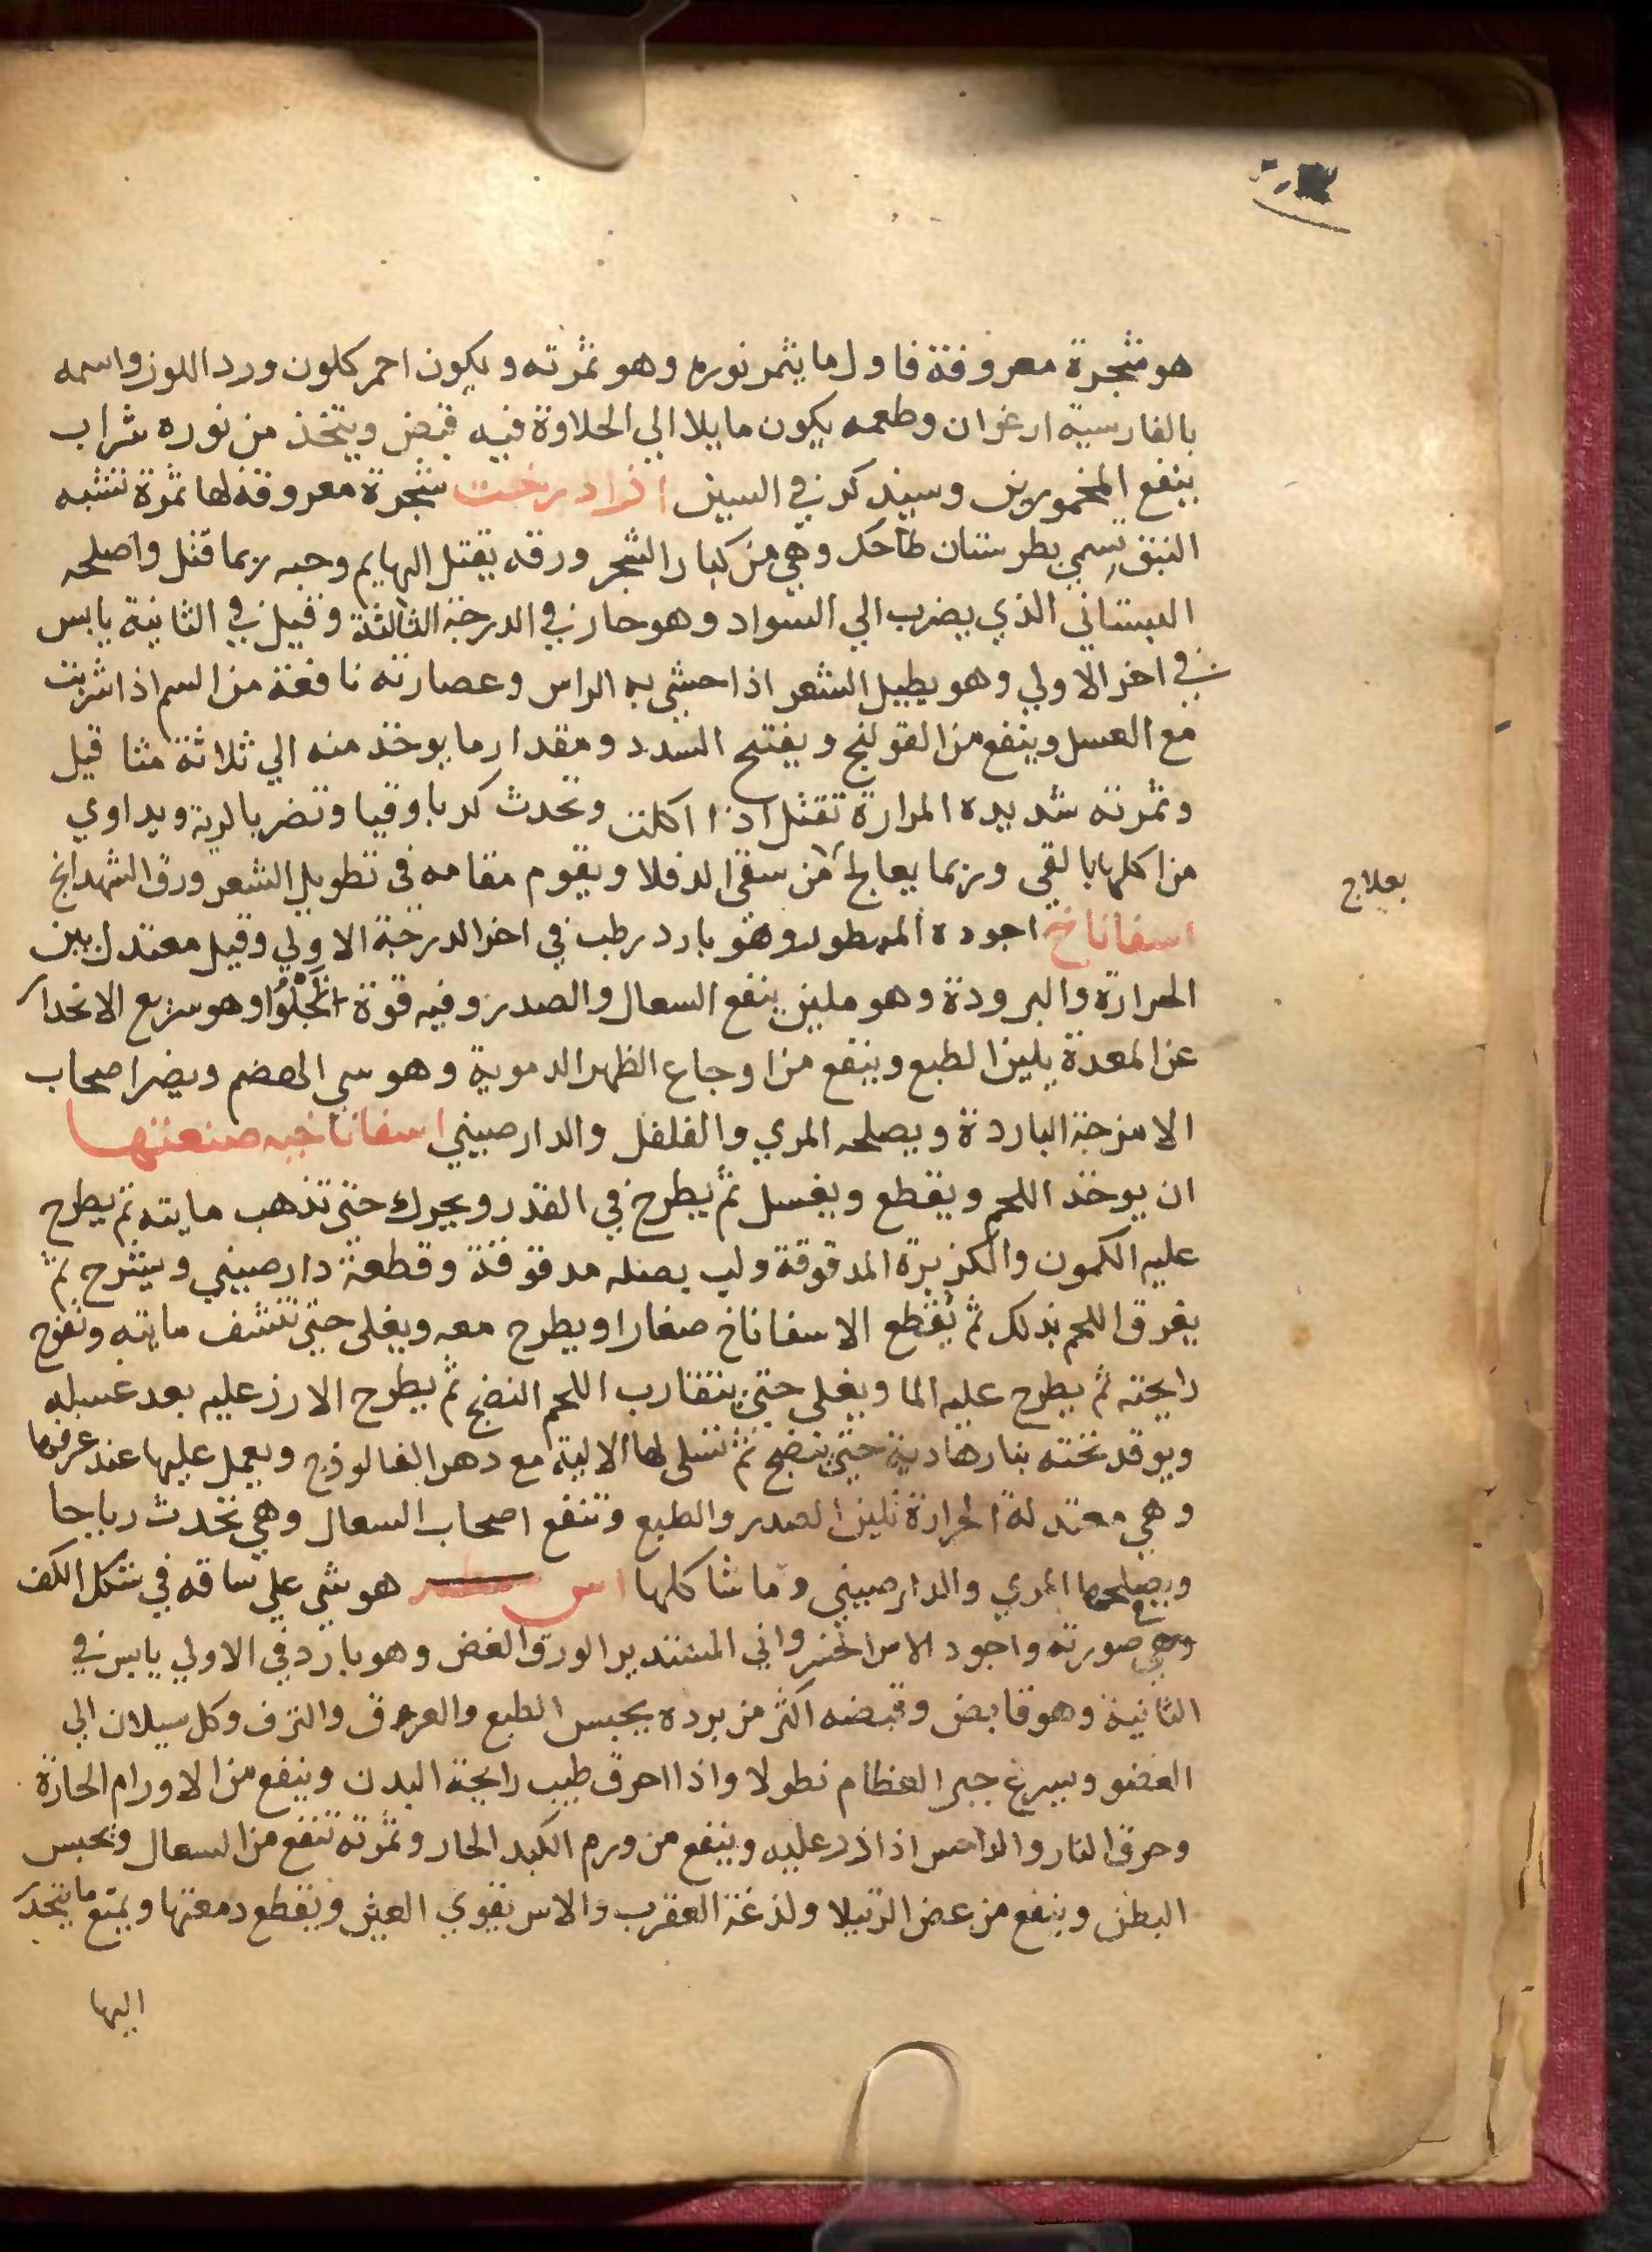 هو شجرة معروفة فاول ما يثمر نوره وهو ثمرته ويكون احمر كلون ورد اللوز واسمه
بالفارسية ارغوان وطعمه يكون مايلا الي الحلاوة فيه قبض ويتخذ من نوره شراب
ينفع المخمورين وسيذكر في السين ازادرخت شجرة معروفة لها ثمرة تشبه
النبق يسمي بطرستان طاحك وهي من كبار الشجر ورقه يقتل البهايم وحبه ربما قتل واصلحه
البستاني الذي يضرب الي السواد وهو حار في الدرجة الثالثة وقيل في الثانية يابس
في اخر الاولي وهو يطيل الشعر اذا حشي به الراس وعصارته نافعة من السم اذا شربت
مع العسل وينفع من القولنج ويفتح السدد ومقدار ما يوخذ منه الي ثلاثة مثاقيل
وثمرته شديده المرارة تقتل اذا اكلت وتحدث كربا وقيا وتضر بالرية ويداوي
من اكلها بالقي وربما يعالج من سقي الدفلا ويقوم مقامه في تطويل الشعر ورق الشهدانج
بعلاج
اسفاناخ اجوده الممطور وهو بارد رطب في اخر الدرجة الاولي وقيل معتدل بين
الحرارة والبرودة وهو ملين ينفع السعال والصدر وفيه قوة تجلوا وهو سريع الانحدار
عن المعدة يلين الطبع وينفع من اوجاع الظهر الدموية وهو سي الهضم ويضر اصحاب
الامزجة الباردة ويصلحه المري والفلفل والدارصيني اسفاناخيه صنعتها
ان يوخذ اللحم ويقطع ويغسل ثم يطرح في القدر ويحرك حتي تذهب مايته ثم يطرح
عليه الكمون والكزبرة المدقوقة ولب بصله مدقوقة وقطعة دارصيني وشيرج ثم
يعرق اللحم بذلك ثم يقطع الاسفاناخ صغارا ويطرح معه ويغلي حتي تنشف مايته وتفوح
رايحته ثم يطرح عليه الما ويغلي حتي يتقارب اللحم النضج ثم يطرح الارز عليه بعد غسله
ويوقد تحته بنار هادية حتي ينضج ثم تسلي لها الالية مع دهن الفالوذج ويعمل عليها عند غرفها
وهي معتدلة الحرارة تلين الصدر والطبع وتنفع اصحاب السعال وهي تحدث رياحا
ويصلحها المري والدارصيني وما شاكلها اس هو شي علي ساقه في شكل الكف
وهي صورته واجود الاس الخسرواني المستدير الورق الغض وهو بارد في الاولي يابس في
الثانية وهو قابض وقبضه اكثر من برده يحبس الطبع والعرق والنزف وكل سيلان الي
العضو ويسرع جبر العظام نطولا واذا احرق طيب رايحة البدن وينفع من الاورام الحارة
وحرق النار والداحس اذا ذر عليه وينفع من ورم الكبد الحار وثمرته تنفع من السعال وتحبس
البطن وينفع من عض الرتيلا ولدغة العقرب والاس يقوي العين ويقطع دمعتها ويمنع ما يتحدر
اليها